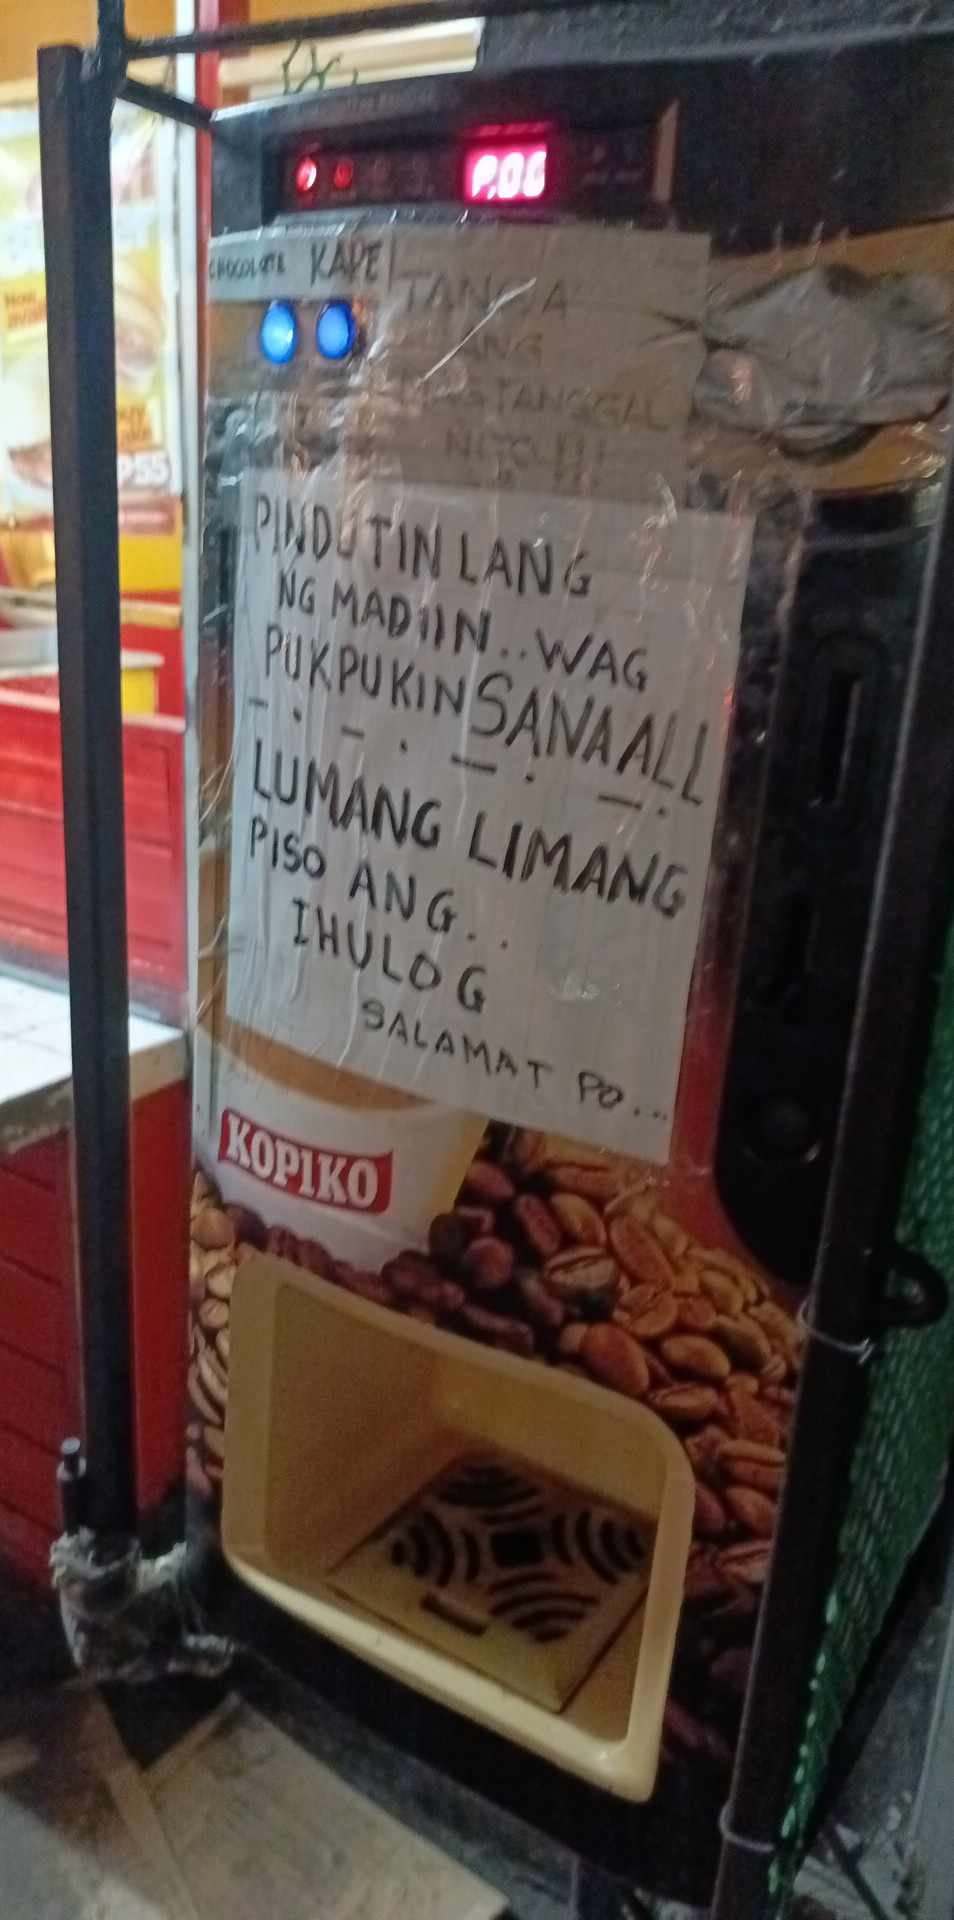 P.00
CHOCOLATE KAPE
TANGA
ANG
NAGTANGGAL
NITO!!!
PINDUTIN LANG
NG MADIIN.. WAG
PUKPUKIN SANA ALL
LUMANG LIMANG
PISO ANG..
IHULOG
SALAMAT PO...
KOPIKO
P55